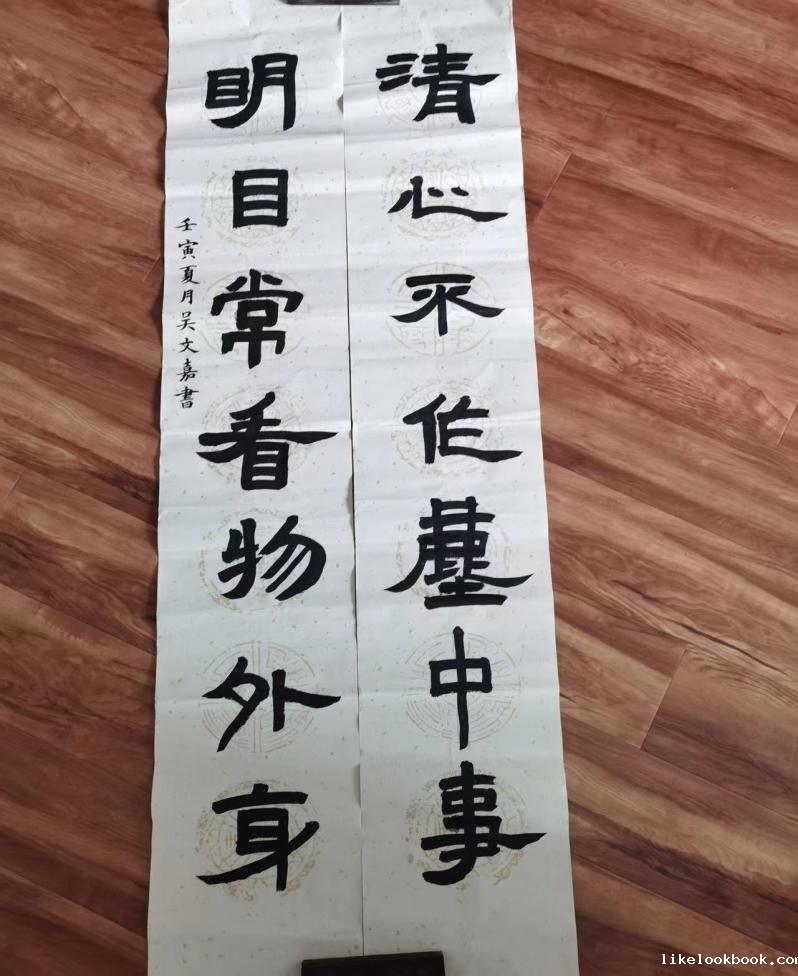 清心不作塵中事
明目常看物外身
壬寅夏月吴文嘉書
likelookbook.com